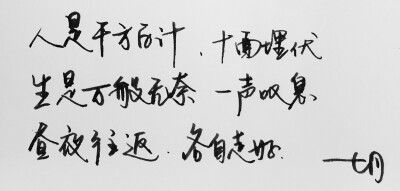 人是千方百计、十面埋伏
生是万般无奈 一声叹息
昼夜往返、各自志好.
一七月